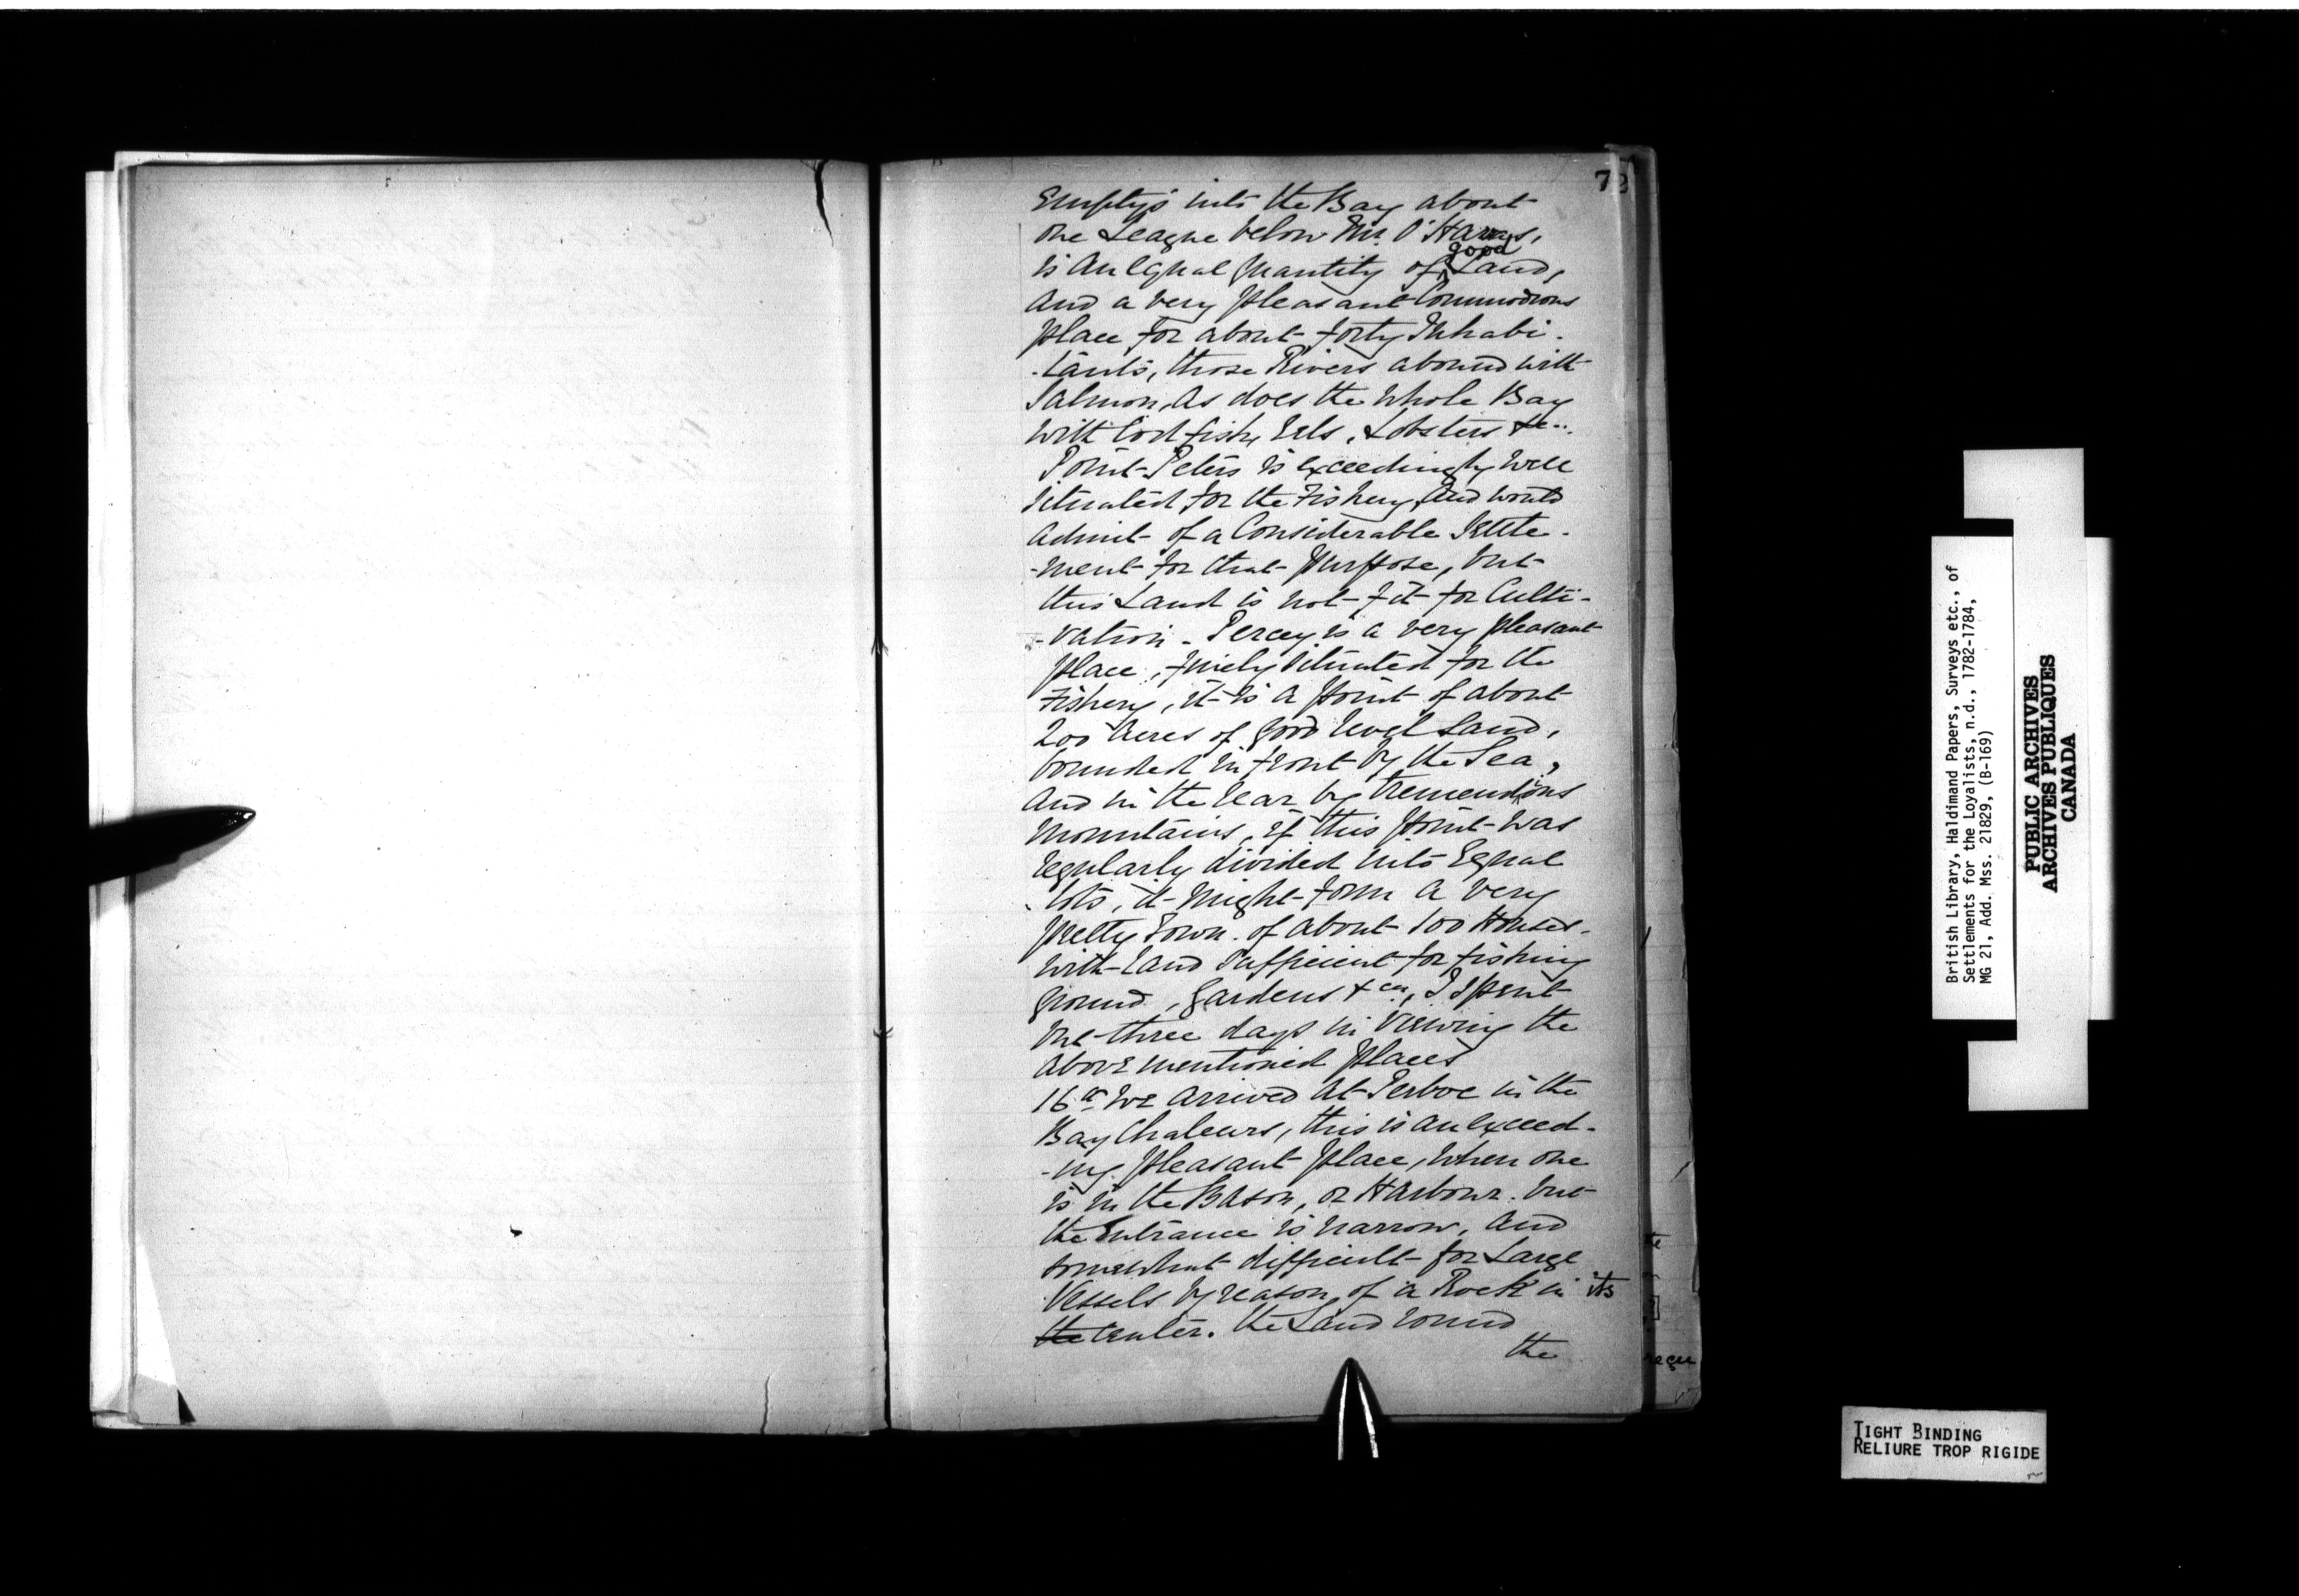 72
Empty's into the Bay about
one League below Mr. O'Haras,
good
is an Equal quantity of Land,
and a very pleasant Commodious
place for about forty Inhabi-
-tants, those Rivers abound with
Salmon, as does the Whole Bay
with Cod fish, Eels, Lobsters &c..
Point Peters is exceedingly well
situated for the Fishery, and would
admit of a Considerable Settle-
-ment for that purpose, but
this Land is not fit for Culti-
-vation - Percey is a very pleasant
place, finely situated for the
Fishery, it is a point of about
200 acres of good level Land,
bounded in front by the Sea,
and in the rear by tremendious
Mountains, if this point was
regularly divided into Equal
lots, it might form a very
pretty Town of about 100 Houses-
with Land sufficient for fishing
ground, gardens &ca, I spent
but three days in Viewing the
above mentioned places
16th We arrived at Perboe in the
Bay Chaleurs, this is an exceed-
-ing pleasant place, when one
is in the Bason, or Harbour. but
the Entrance is narrow, and
somewhat difficult for Large
Vessels by reason of a Rock in its
the center. the Land round
the
British Library, Haldimand Papers, Surveys etc., of
Settlements for the Loyalists, n.d., 1782-1784,
MG 21, Add. Mss. 21829, (B-169)
PUBLIC ARCHIVES
ARCHIVES PUBLIQUES
CANADA
TIGHT BINDING
RELIURE TROP RIGIDE